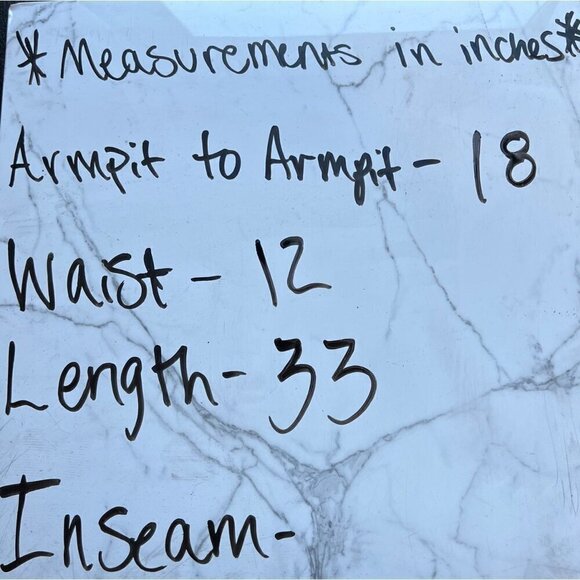 *Measurements in inches*
Armpit to Armpit - 18
Waist - 12
Length - 33
Inseam -